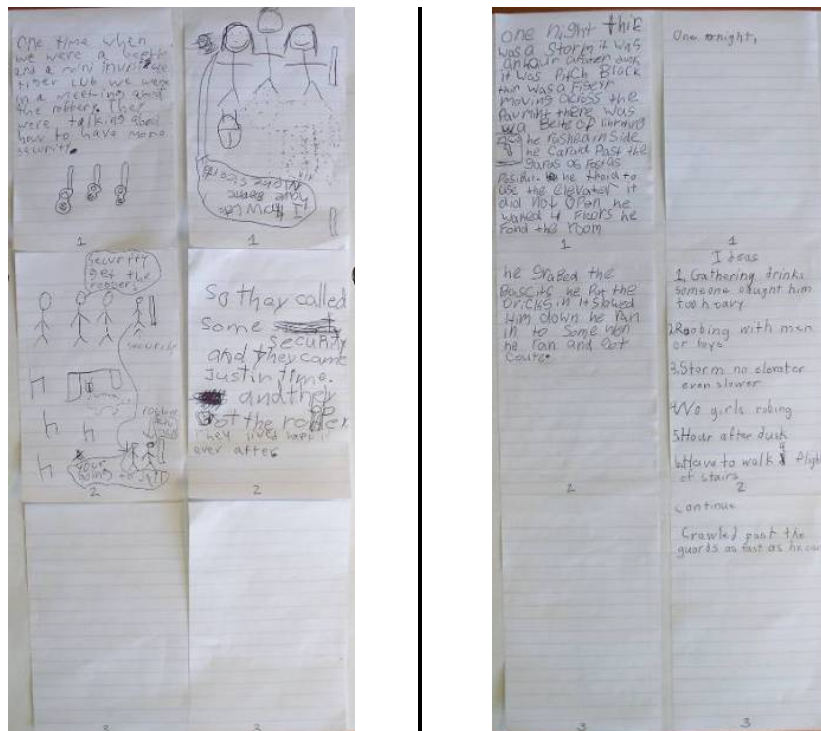 One time when
we were a
and a mini
tiger cub we were
in a meeting about
the robbery. They
were talking about
how to have more
security.
1
I know we
have some
more
1
security
get the
robbers
security
robber
your
going to jail
2
So they called
some
security
and they came
Just in time.
and they
got the
They lived happily
ever after
2
3
3
one night thir
was a Storm it was
an our after dusk
it was Pitch Block
thir was a Figeyr
moving across the
Pavmint there was
a Belt of
he rushed in Side
he Carald Past the
gards as Fast as
Posibul. he traid to
use the elevater it
did not OPen he
waked 4 Floors he
Fond the room
1
One night,
1
he grabed the
Bascits he Put the
Dricks in it Slowed
Him down he ran
in to Some
he ran and Got
2
Ideas
1. Gathering drinks
someone caught him
too
2. Roobing with men
or boys
3. Storm no elevator
even slower
4. No girls robing
5. Hour after dusk
6. Have to walk 4 flights
of stairs
2
continue
Crawled past the
guards as fast as he can
3
3